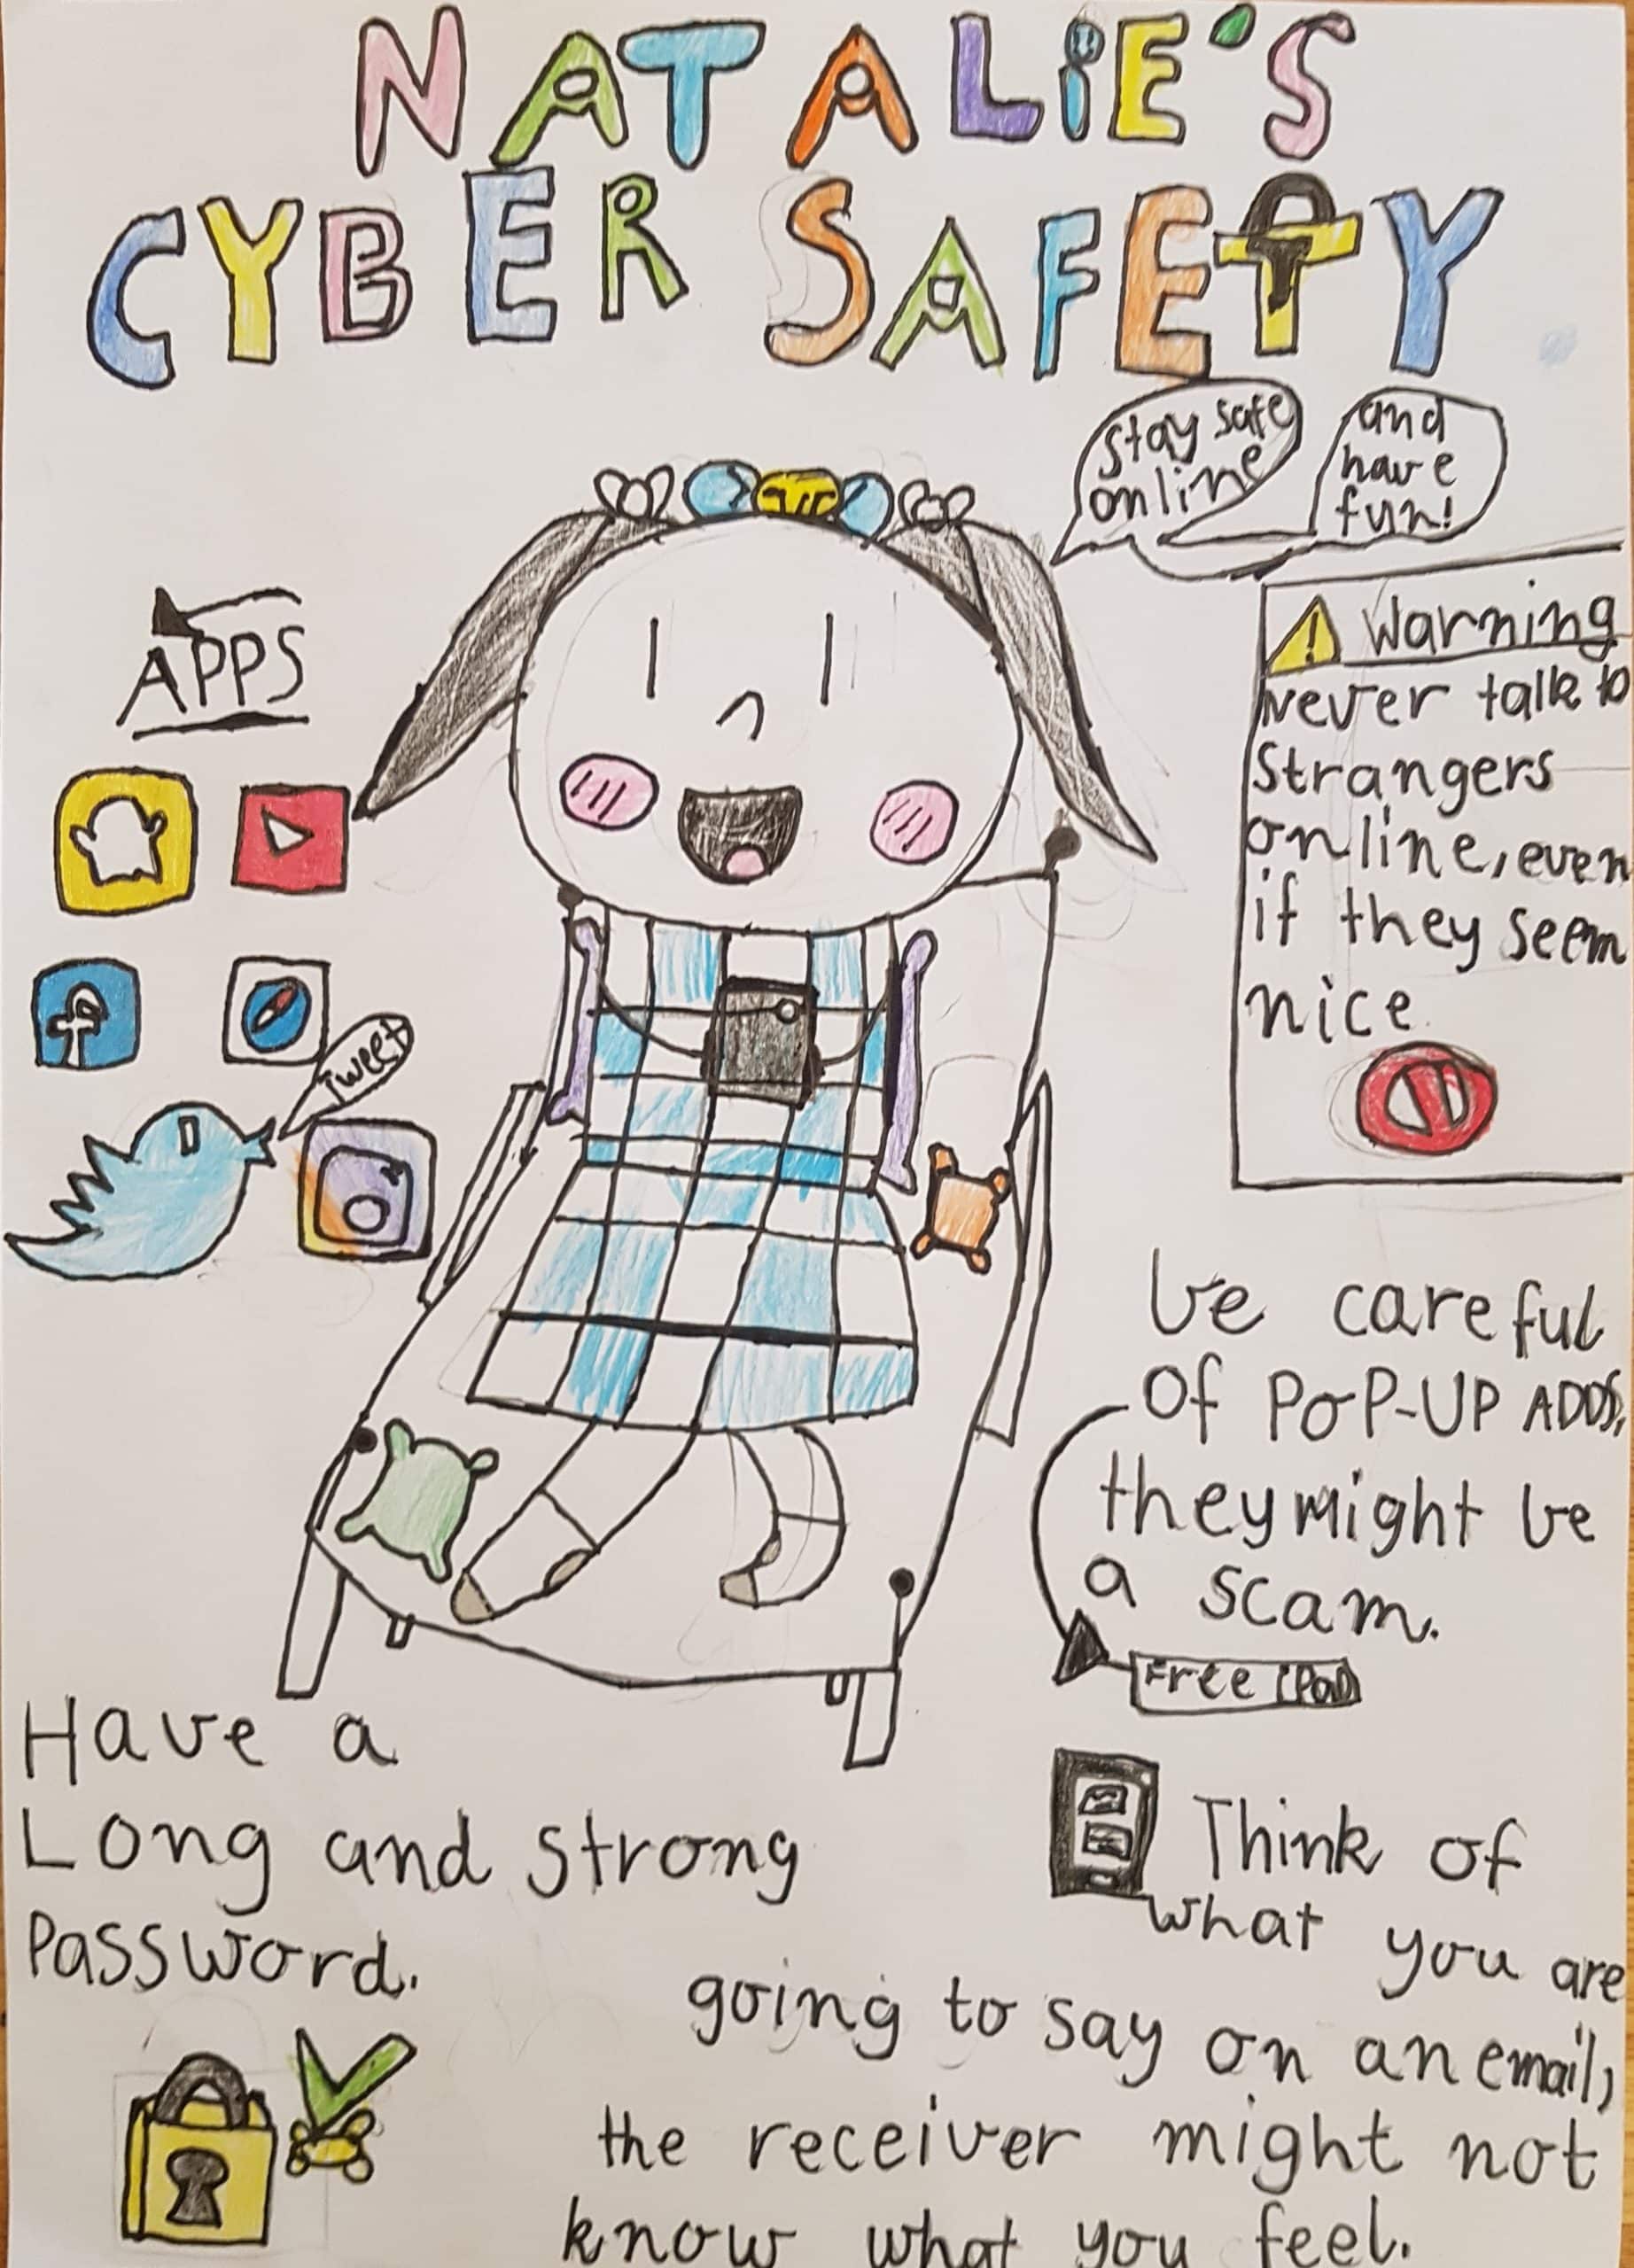 NATALiE'S
CYBER SAFETY
Stay safe
online
and
have
fun!
APPS
Tweet
! Warning
Never talk to
Strangers
online, even
if they seem
nice.
be careful
Of POP-UP ADDS,
they might be
a scam.
Free iPad
Have a
Long and strong
Password.
Think of
what you are
going to say on an email,
the receiver might not
know what you feel.